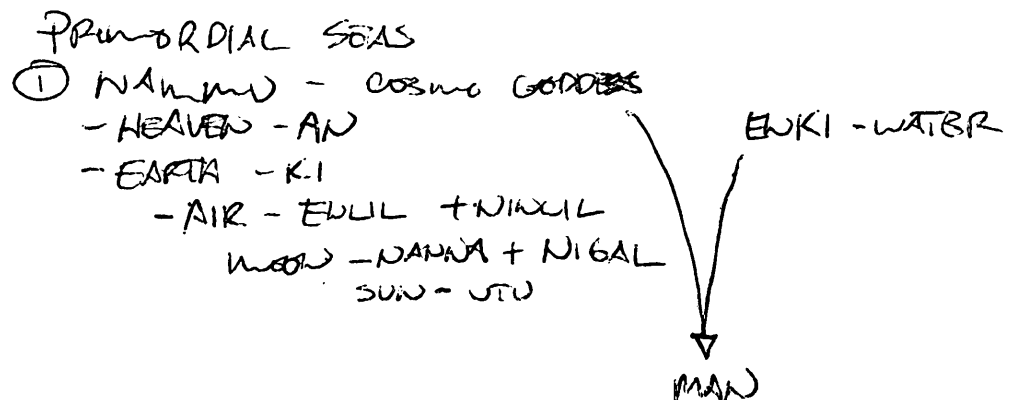 PRIMORDIAL SEAS
① NAMMU - COSMIC GODDESS
- HEAVEN - AN
ENKI - WATER
- EARTH - KI
- AIR - ENLIL + NINLIL
MOON - NANNA + NIGAL
SUN - UTU
MAN